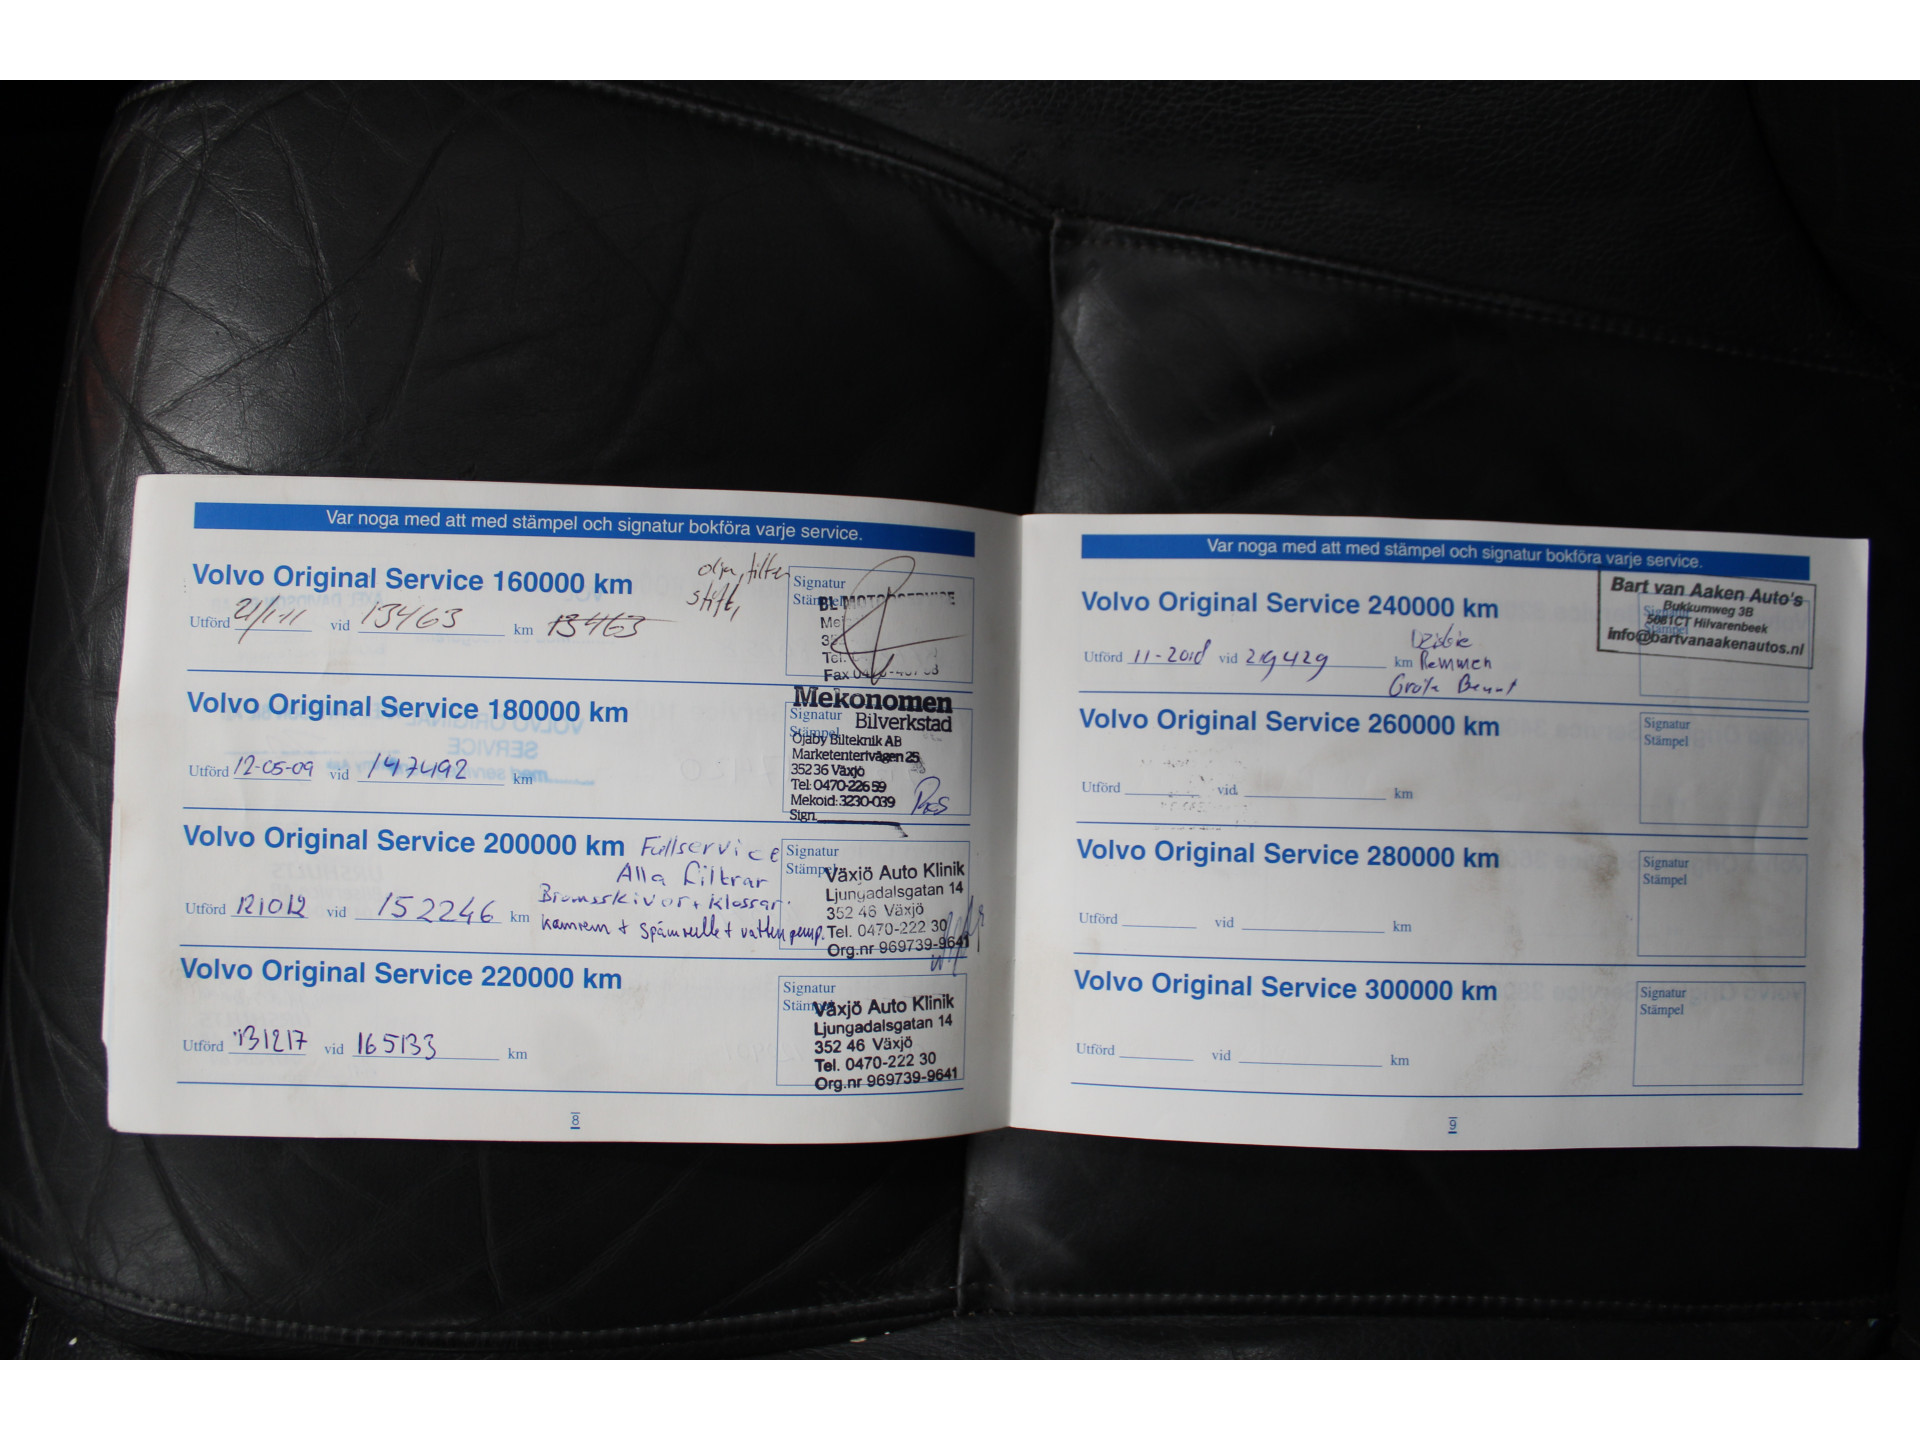 Var noga med att med stämpel och signatur bokföra varje service.
Volvo Original Service 160000 km
olja, filter
stift,
Utförd 21/1-11 vid 13463 km 13463
Signatur
Stämpel
BL MOTORSERVICE
Tel.
Fax
Volvo Original Service 180000 km
Utförd 12-05-09 vid 147492 km
Signatur
Stämpel
Mekonomen
Bilverkstad
Öjaby Bilteknik AB
Marketenterivägen 25
352 36 Växjö
Tel: 0470-226 59
Mekoid: 3230-039
Sign.
Volvo Original Service 200000 km
Fullservice
Alla filtrar
Bromsskivor + klossar.
kamrem + spännrulle + vattenpump.
Utförd 121012 vid 152246 km
Signatur
Stämpel
Växjö Auto Klinik
Ljungadalsgatan 14
352 46 Växjö
Tel. 0470-222 30
Org.nr 969739-9641
Volvo Original Service 220000 km
Utförd 131217 vid 165133 km
Signatur
Stämpel
Växjö Auto Klinik
Ljungadalsgatan 14
352 46 Växjö
Tel. 0470-222 30
Org.nr 969739-9641
8
Var noga med att med stämpel och signatur bokföra varje service.
Volvo Original Service 240000 km
Utförd 11-2018 vid 219429 km
Remmen
Grote Beurt
Signatur
Stämpel
Bart van Aaken Auto's
Bukkumweg 3B
5081CT Hilvarenbeek
info@bartvanaakenautos.nl
Volvo Original Service 260000 km
Utförd vid km
Signatur
Stämpel
Volvo Original Service 280000 km
Utförd vid km
Signatur
Stämpel
Volvo Original Service 300000 km
Utförd vid km
Signatur
Stämpel
9